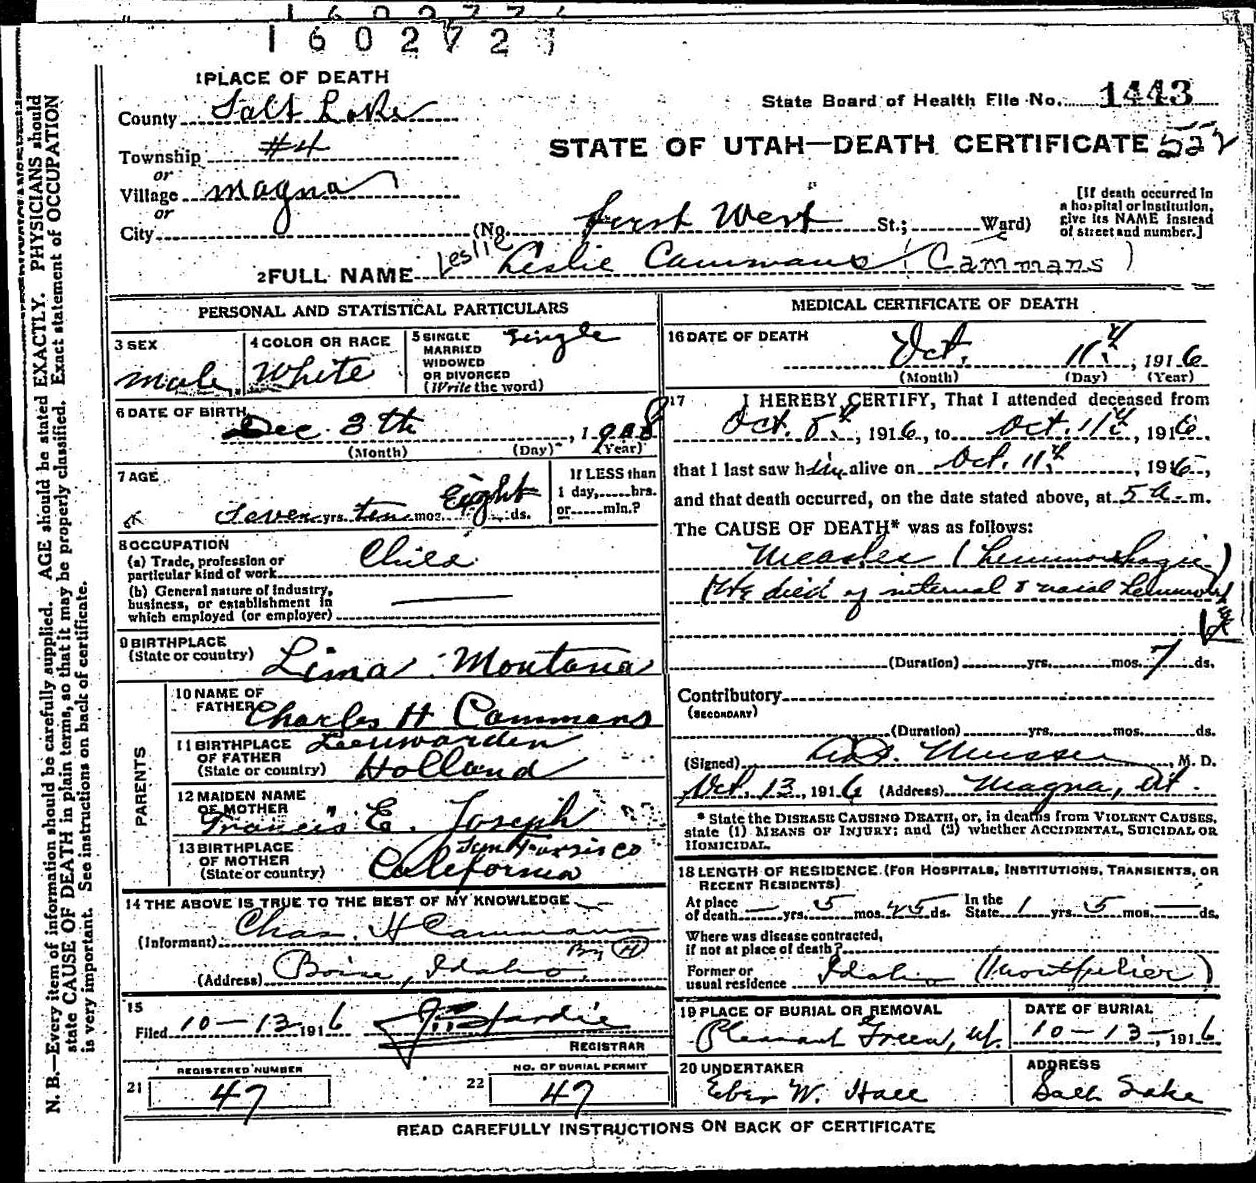 1602727
1 PLACE OF DEATH
County Salt Lake
Township #4
or
Village Magna
or
City
(No. First West St.; Ward)
State Board of Health File No. 1443
STATE OF UTAH—DEATH CERTIFICATE 522
[If death occurred in
a hospital or institution,
give its NAME instead
of street and number.]
2 FULL NAME Leslie Leslie Cammans (Cammans)
PERSONAL AND STATISTICAL PARTICULARS
3 SEX
Male
4 COLOR OR RACE
White
5 SINGLE
MARRIED
WIDOWED
OR DIVORCED
(Write the word)
Single
6 DATE OF BIRTH
Dec. 3th, 1908
(Month) (Day) (Year)
7 AGE
Seven yrs. ten mos. Eight ds.
If LESS than
1 day,.....hrs.
or.....min.?
8 OCCUPATION
(a) Trade, profession or
particular kind of work
Child
(b) General nature of industry,
business, or establishment in
which employed (or employer)
9 BIRTHPLACE
(State or country) Lima Montana
PARENTS
10 NAME OF
FATHER Charles H Cammans
11 BIRTHPLACE
OF FATHER
(State or country)
Leeuwarden
Holland
12 MAIDEN NAME
OF MOTHER
Francis E. Joseph
13 BIRTHPLACE
OF MOTHER
(State or country)
San Fransisco
California
14 THE ABOVE IS TRUE TO THE BEST OF MY KNOWLEDGE
(Informant) Chas. H Cammans
By H
(Address) Boise, Idaho
15
Filed 10-13 1916 J. Hardie
REGISTRAR
21 REGISTERED NUMBER
47
22 NO. OF BURIAL PERMIT
47
MEDICAL CERTIFICATE OF DEATH
16 DATE OF DEATH
Oct. 11th, 1916
(Month) (Day) (Year)
17 I HEREBY CERTIFY, That I attended deceased from
Oct. 8th, 1916, to Oct. 11th, 1916,
that I last saw him alive on Oct. 11th, 1916,
and that death occurred, on the date stated above, at 5 a. m.
The CAUSE OF DEATH* was as follows:
Measles (hemmorhagic)
(He died of internal & nasal hemmorhage
(Duration) yrs. mos. 7 ds.
Contributory
(SECONDARY)
(Duration) yrs. mos. ds.
(Signed) Musser, M. D.
Oct. 13, 1916 (Address) Magna, Ut.
* State the DISEASE CAUSING DEATH, or, in deaths from VIOLENT CAUSES,
state (1) MEANS OF INJURY; and (2) whether ACCIDENTAL, SUICIDAL OR
HOMICIDAL.
18 LENGTH OF RESIDENCE (FOR HOSPITALS, INSTITUTIONS, TRANSIENTS, OR
RECENT RESIDENTS)
At place
of death — yrs. 5 mos. 25 ds.
In the
State 1 yrs. 5 mos. — ds.
Where was disease contracted,
if not at place of death?
Former or
usual residence Idaho (Montpelier)
19 PLACE OF BURIAL OR REMOVAL
Pleasant Green, Ut.
DATE OF BURIAL
10-13-, 1916
20 UNDERTAKER
Eber W. Hall
ADDRESS
Salt Lake
READ CAREFULLY INSTRUCTIONS ON BACK OF CERTIFICATE
N. B.—Every item of information should be carefully supplied. AGE should be stated EXACTLY. PHYSICIANS should
state CAUSE OF DEATH in plain terms, so that it may be properly classified. Exact statement of OCCUPATION
is very important. See instructions on back of certificate.